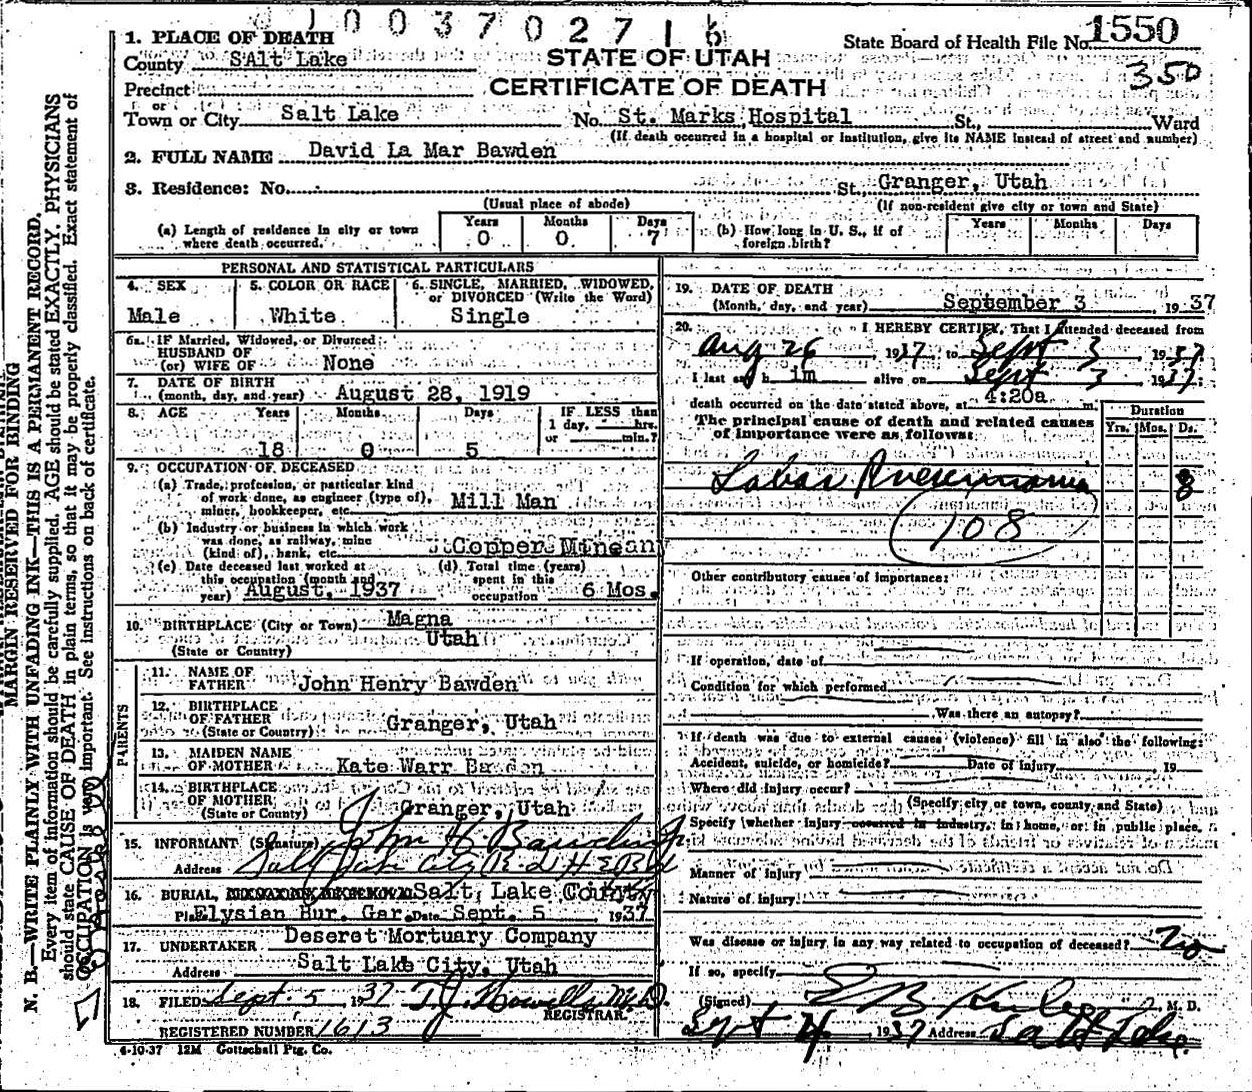 1003702716
1. PLACE OF DEATH
County SAlt Lake
STATE OF UTAH
State Board of Health File No. 1550
350
Precinct
CERTIFICATE OF DEATH
or
Town or City Salt Lake No. St. Marks Hospital St., Ward
(If death occurred in a hospital or institution, give its NAME instead of street and number)
2. FULL NAME David La Mar Bawden
3. Residence: No. St. Granger, Utah
(Usual place of abode) (If non-resident give city or town and State)
(a) Length of residence in city or town where death occurred. Years 0 Months 0 Days 7
(b) How long in U. S., if of foreign birth? Years Months Days
PERSONAL AND STATISTICAL PARTICULARS
4. SEX Male
5. COLOR OR RACE White
6. SINGLE, MARRIED, WIDOWED, or DIVORCED (Write the Word) Single
6a. IF Married, Widowed, or Divorced
HUSBAND OF
(or) WIFE OF None
7. DATE OF BIRTH
(month, day, and year) August 28, 1919
8. AGE Years 18 Months 0 Days 5 IF LESS than 1 day, hrs. or min.?
9. OCCUPATION OF DECEASED
(a) Trade, profession, or particular kind
of work done, as engineer (type of),
miner, bookkeeper, etc. Mill Man
(b) Industry or business in which work
was done, as railway, mine
(kind of), bank, etc. Copper
(c) Date deceased last worked at
this occupation (month and
year) August, 1937
(d) Total time (years)
spent in this
occupation 6 Mos.
10. BIRTHPLACE (City or Town) Magna
(State or Country) Utah
PARENTS
11. NAME OF
FATHER John Henry Bawden
12. BIRTHPLACE
OF FATHER Granger, Utah
(State or Country)
13. MAIDEN NAME
OF MOTHER Kate Warr Bawden
14. BIRTHPLACE
OF MOTHER Granger, Utah
(State or County)
15. INFORMANT (Signature) John H. Bawden
Address Salt Lake City
16. BURIAL, Salt Lake County
Elysian Bur. Gar. Date Sept. 5 1937
17. UNDERTAKER Deseret Mortuary Company
Address Salt Lake City, Utah
18. FILED Sept. 5 1937 T. J. Howells, M.D.
REGISTRAR.
REGISTERED NUMBER 1613
4-10-37 12M Gottschall Ptg. Co.
19. DATE OF DEATH
(Month, day, and year) September 3, 1937
20. I HEREBY CERTIFY, That I attended deceased from
Aug 26, 1937 to Sept 3 1937
I last saw h im alive on Sept 3 1937
death occurred on the date stated above, at 4:20a m.
The principal cause of death and related causes
of importance were as follows:
Duration
Yrs. Mos. Ds.
Lobar Pneumonia 8
108
Other contributory causes of importance:
If operation, date of
Condition for which performed
Was there an autopsy?
If death was due to external causes (violence) fill in also the following:
Accident, suicide, or homicide? Date of injury 19
Where did injury occur?
(Specify city or town, county and State)
Specify whether injury occurred in industry, in home, or in public place.
Manner of injury
Nature of injury
Was disease or injury in any way related to occupation of deceased? No
If so, specify
(Signed) M. D.
Sept 4 1937 Address
MARGIN RESERVED FOR BINDING
N. B.—WRITE PLAINLY WITH UNFADING INK—THIS IS A PERMANENT RECORD.
Every item of information should be carefully supplied. AGE should be stated EXACTLY. PHYSICIANS
should state CAUSE OF DEATH in plain terms, so that it may be properly classified. Exact statement of
OCCUPATION is very important. See instructions on back of certificate.